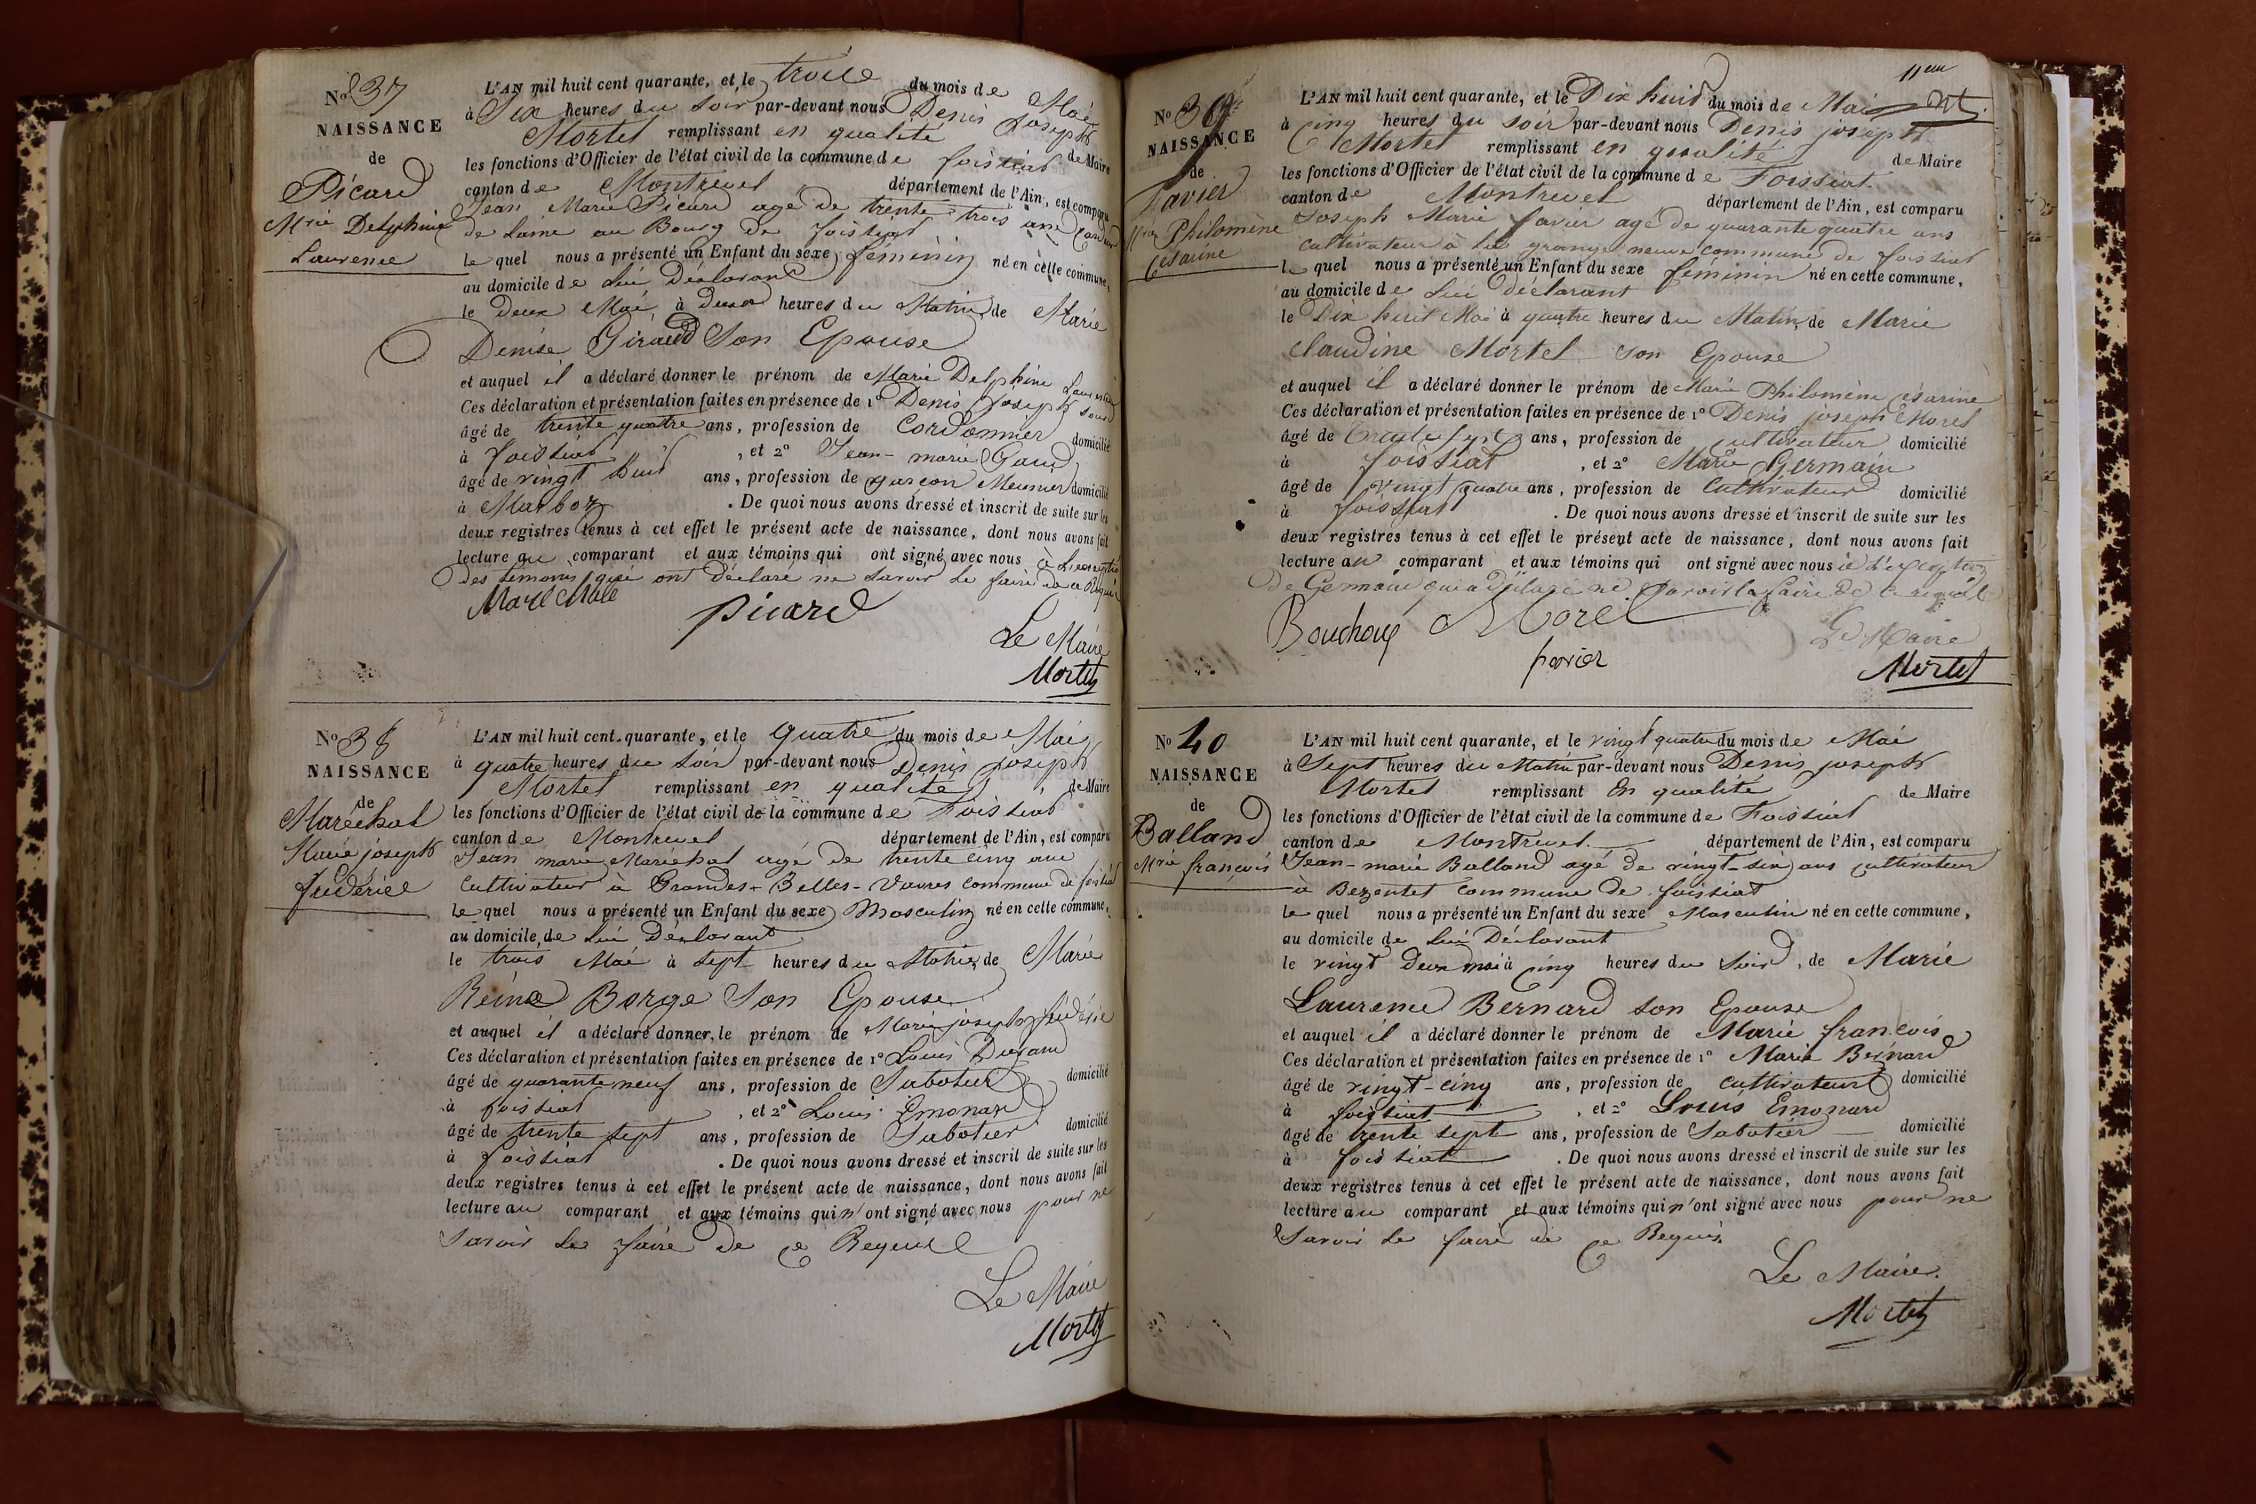 No 37
NAISSANCE
de
Picard
Mrie Delphine
Laurence
L'AN mil huit cent quarante, et le trois du mois de Mai
à Six heures du Soir par-devant nous Denis Joseph
Mortel remplissant en qualité de Maire
les fonctions d'Officier de l'état civil de la commune de foissiat
canton de Montrevel département de l'Ain, est comparu
Jean Marie Picard agé de trente-trois ans
de laine au Bourg de foissiat
le quel nous a présenté un Enfant du sexe féminin né en cette commune,
au domicile de lui Déclarant
le Deux Mai à deux heures du Matin, de Marie
Denise Giraud Son Epouse
et auquel il a déclaré donner le prénom de Marie Delphine Laurence
Ces déclaration et présentation faites en présence de 1º Denis Joseph
âgé de trente quatre ans, profession de Cordonnier domicilié
à foissiat, et 2º Jean-marie
âgé de vingt huit ans, profession de garcon Meunier domicilié
à Marboz. De quoi nous avons dressé et inscrit de suite sur les
deux registres tenus à cet effet le présent acte de naissance, dont nous avons fait
lecture au comparant et aux témoins qui ont signé avec nous à L'exception
des témoins qui ont déclaré ne Savoir le faire de ce Requis
picard
Le Maire
Mortel
No 38
NAISSANCE
de
Maréchal
Marie joseph
fédéric
L'AN mil huit cent quarante, et le quatre du mois de Mai
à quatre heures du Soir par-devant nous Denis Joseph
Mortel remplissant en qualité de Maire
les fonctions d'Officier de l'état civil de la commune de Foissiat
canton de Montrevel département de l'Ain, est comparu
Jean marie Maréchal agé de trente cinq ans
Cultivateur à Grandes-Belles-Vavres commune de foissiat
le quel nous a présenté un Enfant du sexe Masculin né en cette commune,
au domicile de lui Déclarant
le trois Mai à Sept heures du Matin, de Marie
Reine Borge Son Epouse
et auquel il a déclaré donner le prénom de Marie joseph fédéric
Ces déclaration et présentation faites en présence de 1º Louis
âgé de quarante neuf ans, profession de Sabotier domicilié
à foissiat, et 2º Louis Emonard
âgé de trente sept ans, profession de Sabotier domicilié
à foissiat. De quoi nous avons dressé et inscrit de suite sur les
deux registres tenus à cet effet le présent acte de naissance, dont nous avons fait
lecture au comparant et aux témoins qui n'ont signé avec nous pour ne
Savoir le faire de ce Requis
Le Maire
Mortel
11em
No 39
NAISSANCE
de
Favier
Mrie Philomène
Césarine
L'AN mil huit cent quarante, et le Dix huit du mois de Mai
à cinq heures du soir par-devant nous Denis joseph
Mortel remplissant en qualité de Maire
les fonctions d'Officier de l'état civil de la commune de Foissiat
canton de Montrevel département de l'Ain, est comparu
Joseph Marie favier agé de quarante quatre ans
cultivateur à la grange neuve commune de foissiat
le quel nous a présenté un Enfant du sexe féminin né en cette commune,
au domicile de lui déclarant
le Dix huit Mai à quatre heures du Matin, de Marie
claudine Mortel son Epouse
et auquel il a déclaré donner le prénom de Marie Philomène césarine
Ces déclaration et présentation faites en présence de 1º Denis joseph Morel
âgé de trente sept ans, profession de cultivateur domicilié
à foissiat, et 2º Marie Germain
âgé de vingt quatre ans, profession de Cultivateur domicilié
à foissiat. De quoi nous avons dressé et inscrit de suite sur les
deux registres tenus à cet effet le présent acte de naissance, dont nous avons fait
lecture au comparant et aux témoins qui ont signé avec nous à l'exception
De Germain qui a déclaré ne savoir le faire De ce requis
Bouchoux Morel
favier
Le Maire
Mortel
No 40
NAISSANCE
de
Balland
Mrie françois
L'AN mil huit cent quarante, et le vingt quatre du mois de Mai
à Sept heures du Matin par-devant nous Denis joseph
Mortel remplissant En qualité de Maire
les fonctions d'Officier de l'état civil de la commune de Foissiat
canton de Montrevel département de l'Ain, est comparu
Jean-marie Balland agé de vingt-six ans cultivateur
à Bezentet commune de foissiat
le quel nous a présenté un Enfant du sexe Masculin né en cette commune,
au domicile de lui Déclarant
le vingt Deux mai à cinq heures du Soir, de Marie
Laurence Bernard son Epouse
et auquel il a déclaré donner le prénom de Marie françois
Ces déclaration et présentation faites en présence de 1º Marie Bernard
âgé de vingt-cinq ans, profession de cultivateur domicilié
à foissiat, et 2º Louis Emonard
âgé de trente sept ans, profession de Sabotier domicilié
à foissiat. De quoi nous avons dressé et inscrit de suite sur les
deux registres tenus à cet effet le présent acte de naissance, dont nous avons fait
lecture au comparant et aux témoins qui n'ont signé avec nous pour ne
Savoir le faire de ce Requis
Le Maire
Mortel